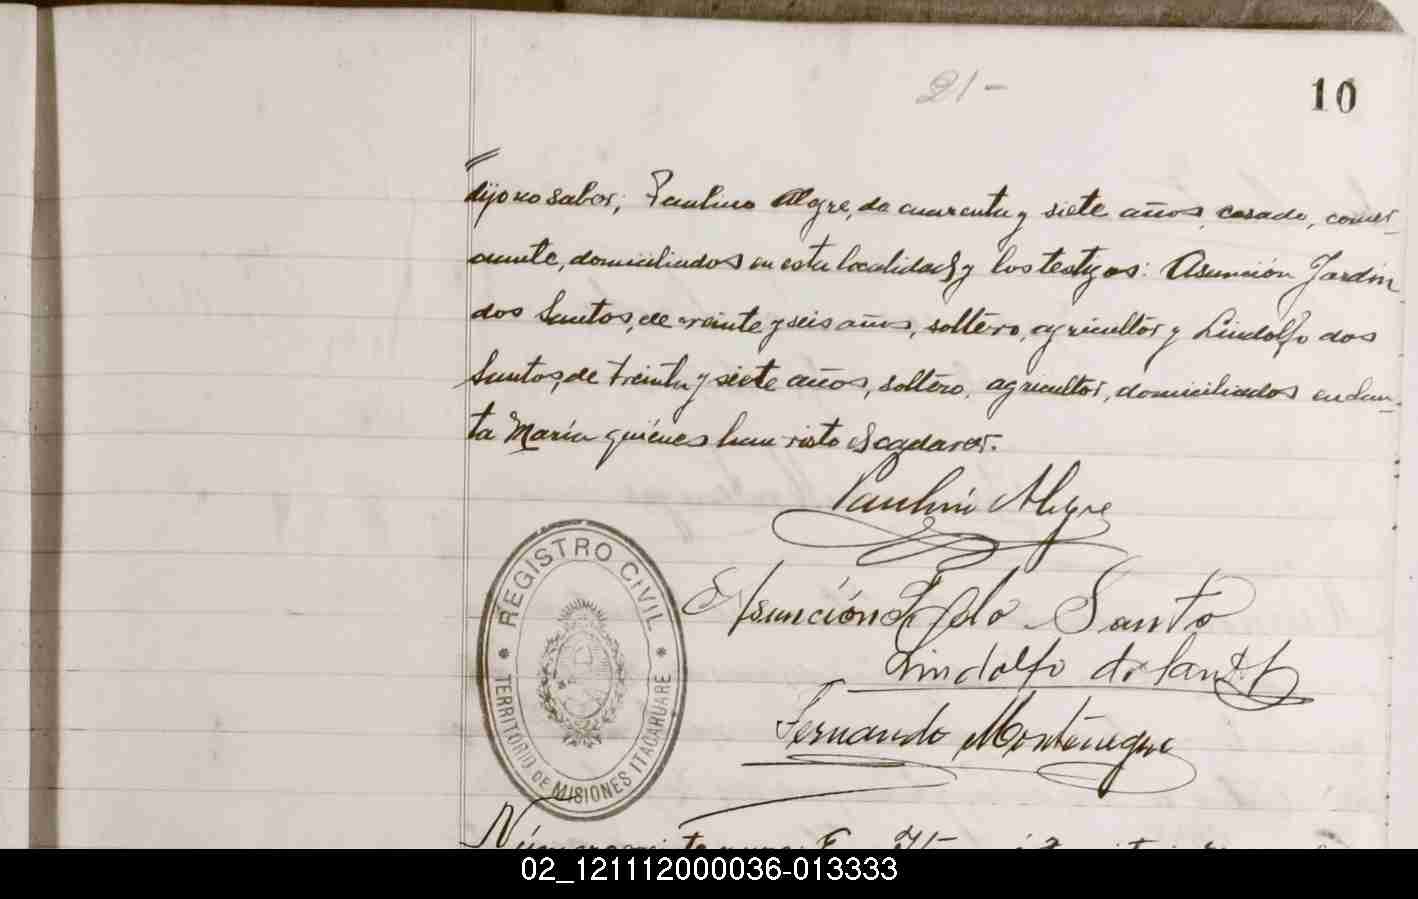 21-
10
dijo no saber; Paulino Alegre, de cuarenta y siete años, casado, comer_
ciante, domiciliados en esta localidad y los testigos: Asunción Jardin
dos Santos, de veinte y seis años, soltero, agricultor y Lindolfo dos
Santos, de treinta y siete años, soltero, agricultor, domiciliados en San_
ta María quiénes han visto el cadaver.
Paulino Alegre
Asunción J do Santo
Lindolfo do Santo
Fernando Montenegro
REGISTRO CIVIL
TERRITORIO DE MISIONES ITACARUARE
02_121112000036-013333